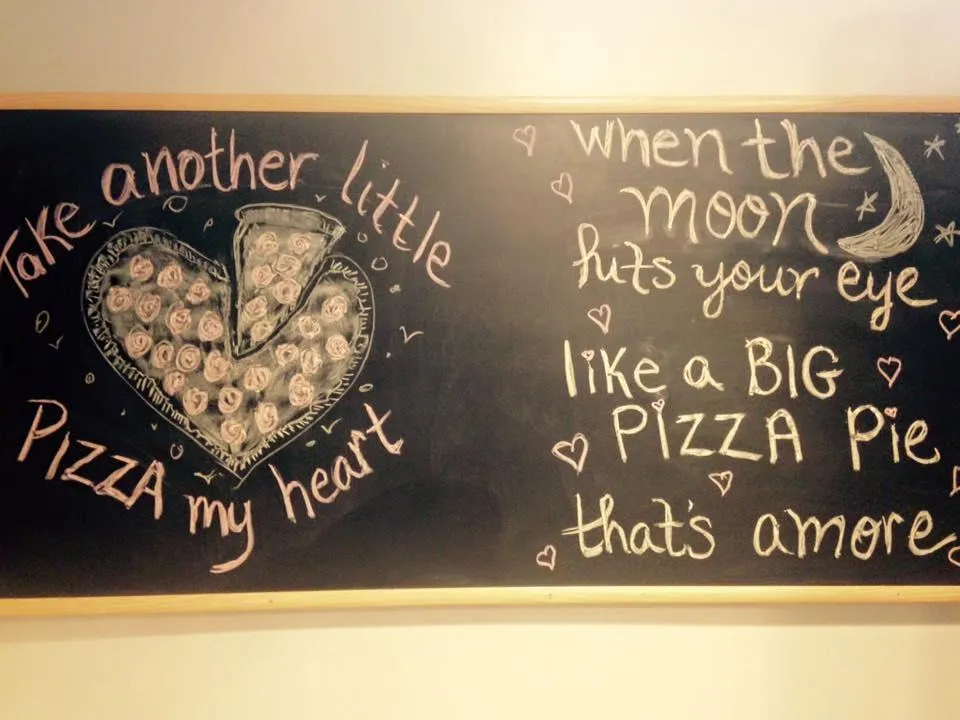 Take another little
PIZZA my heart
when the
moon
hits your eye
like a BIG
PIZZA Pie
that's amore